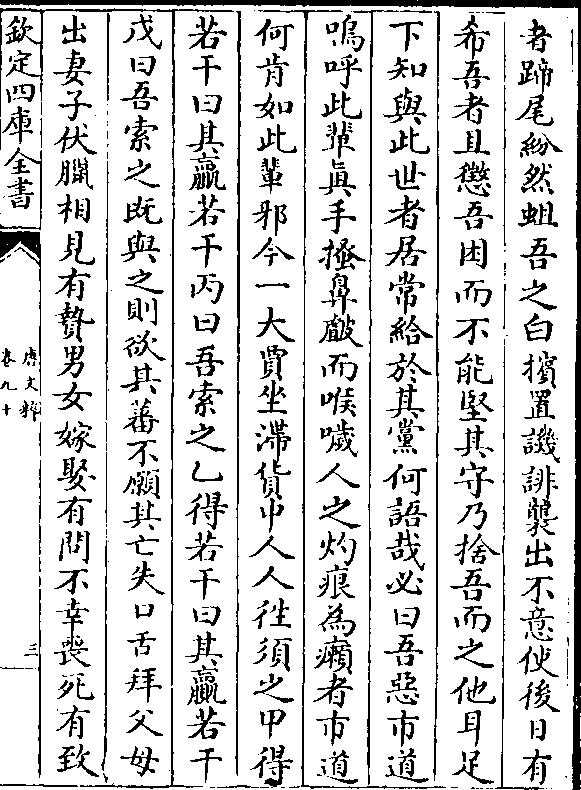 者蹄尾紛然蛆吾之白擯置譏誹襲出不意使後日有
希吾者且懲吾困而不能堅其守乃捨吾而之他耳足
下知與此世者居常給於其黨何語哉必曰吾惡市道
嗚呼此輩真手搔鼻皻而喉噦人之灼痕為癩者市道
何肯如此輩邪今一大賈坐滯貨中人人往須之甲得
若干曰其贏若干丙曰吾索之乙得若干曰其贏若干
戊曰吾索之既與之則欲其蕃不願其亡失口舌拜父母
出妻子伏臘相見有贄男女嫁娶有問不幸喪死有致
欽定四庫全書
唐文粹
卷九十
三